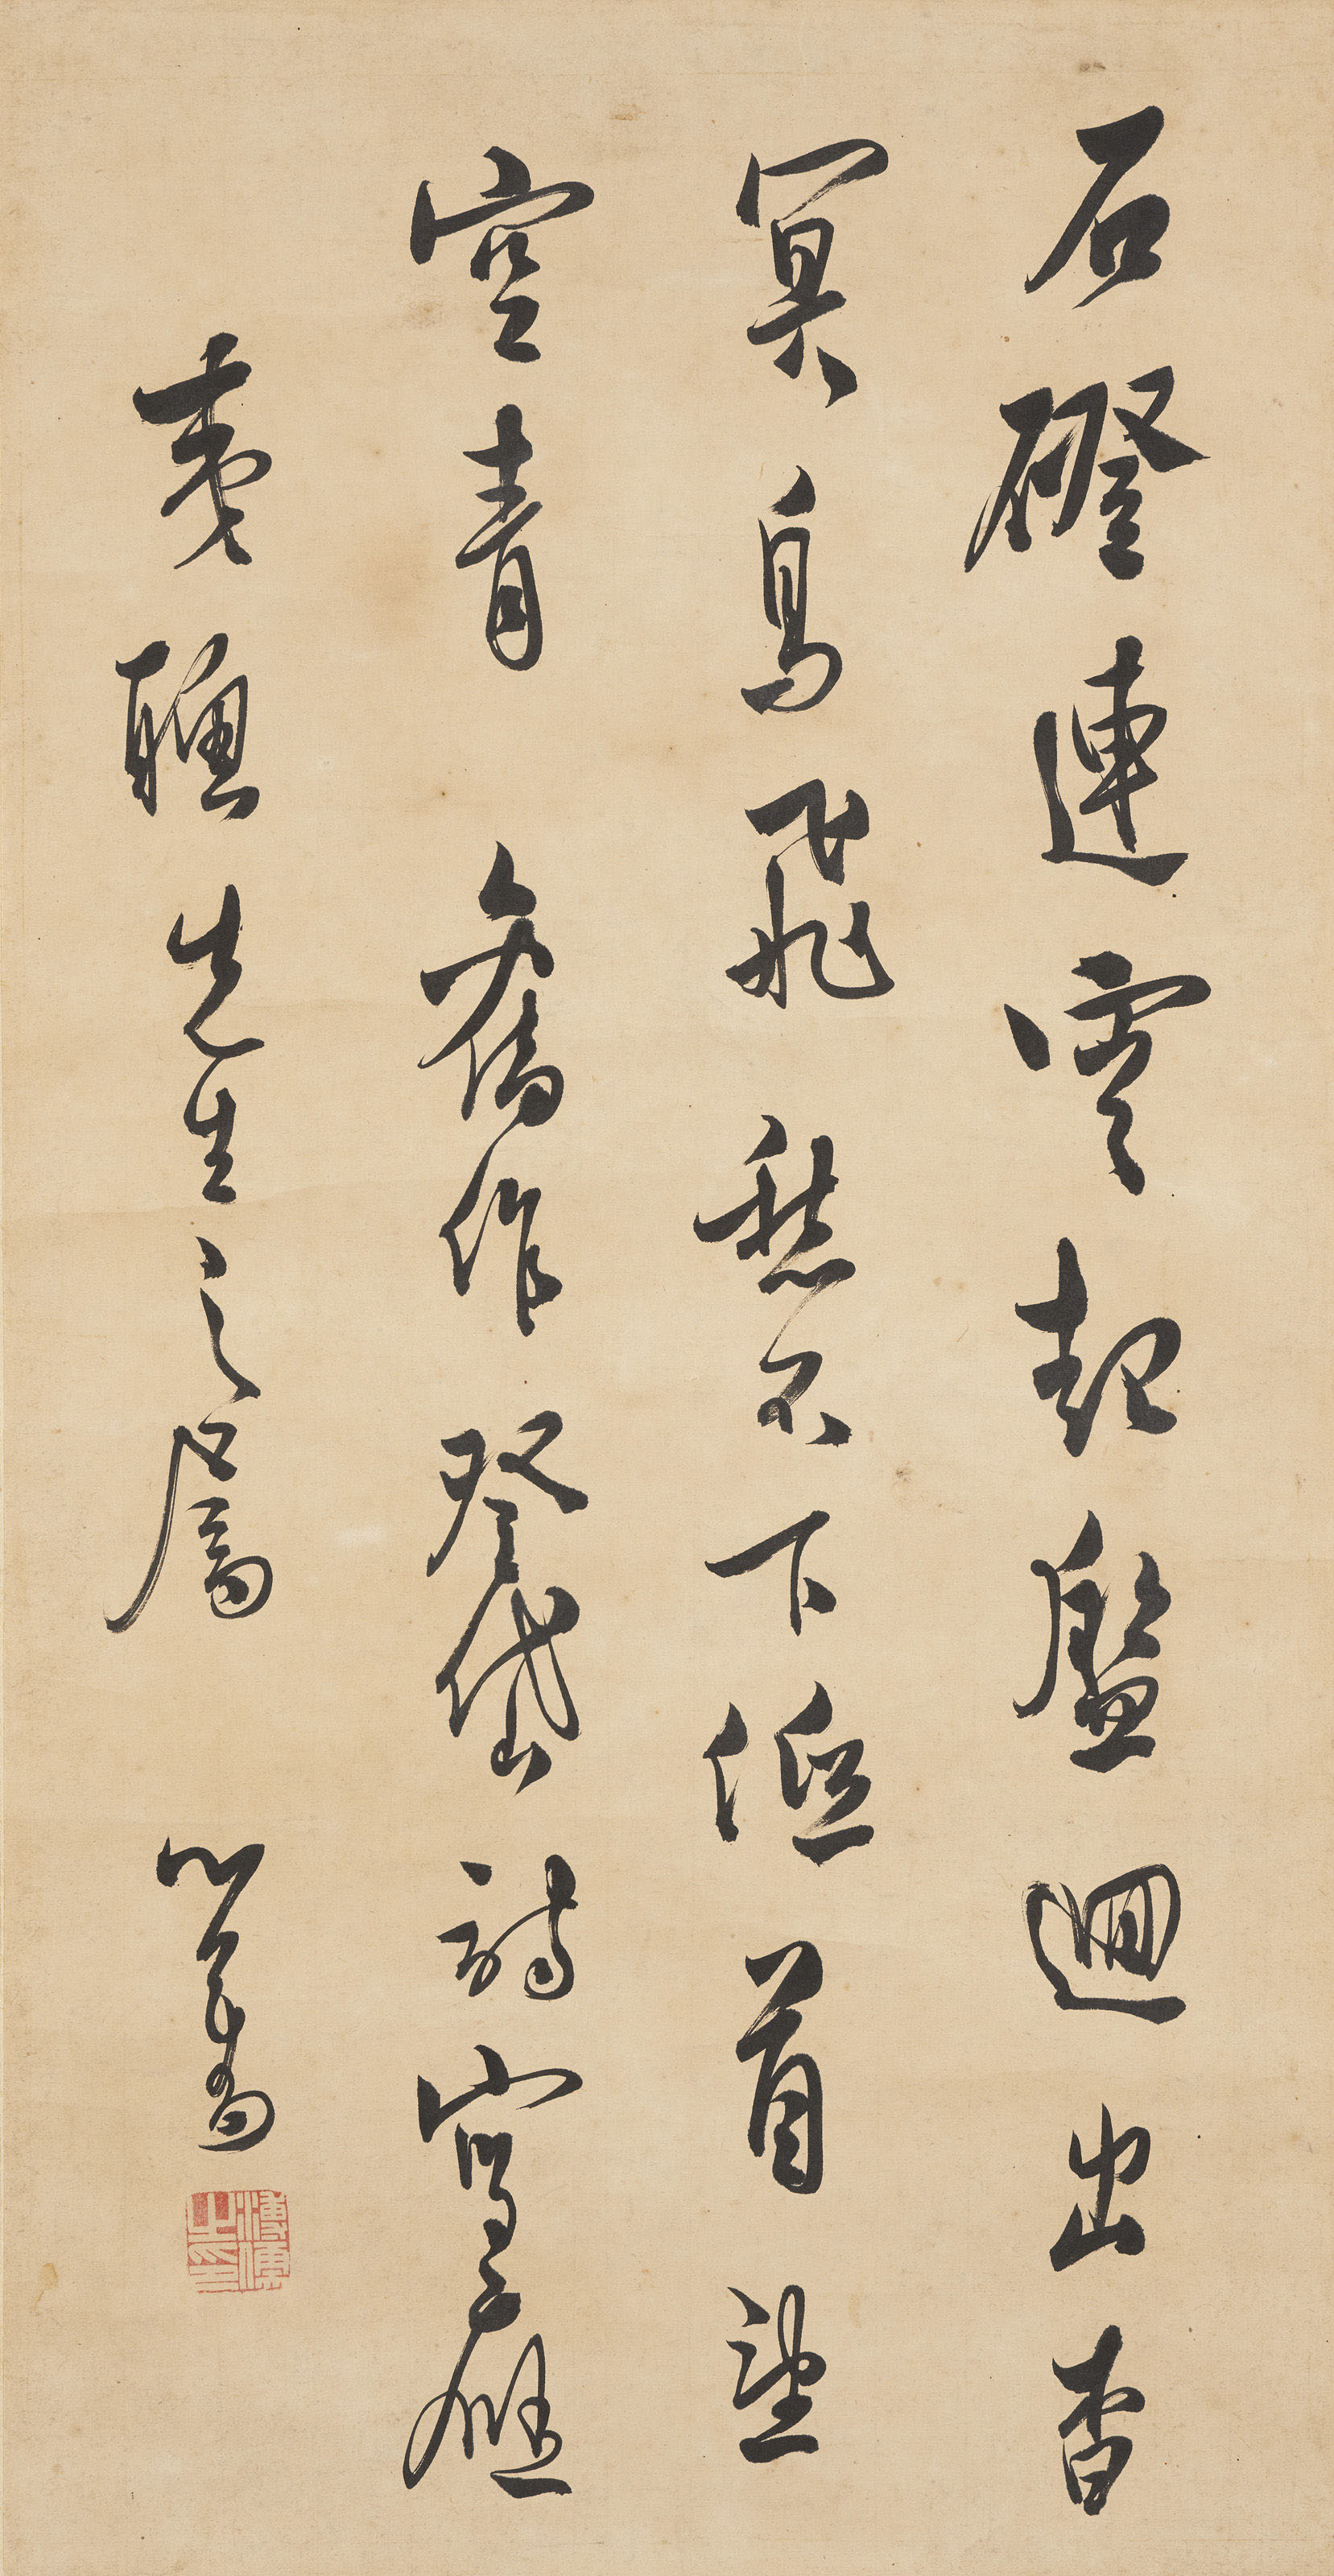 石磴連雲起盤迴出杳
冥鳥飛愁不下低首望
空青 舊作登岱詩寫應
彝聽先生之屬 心畬
溥儒之印